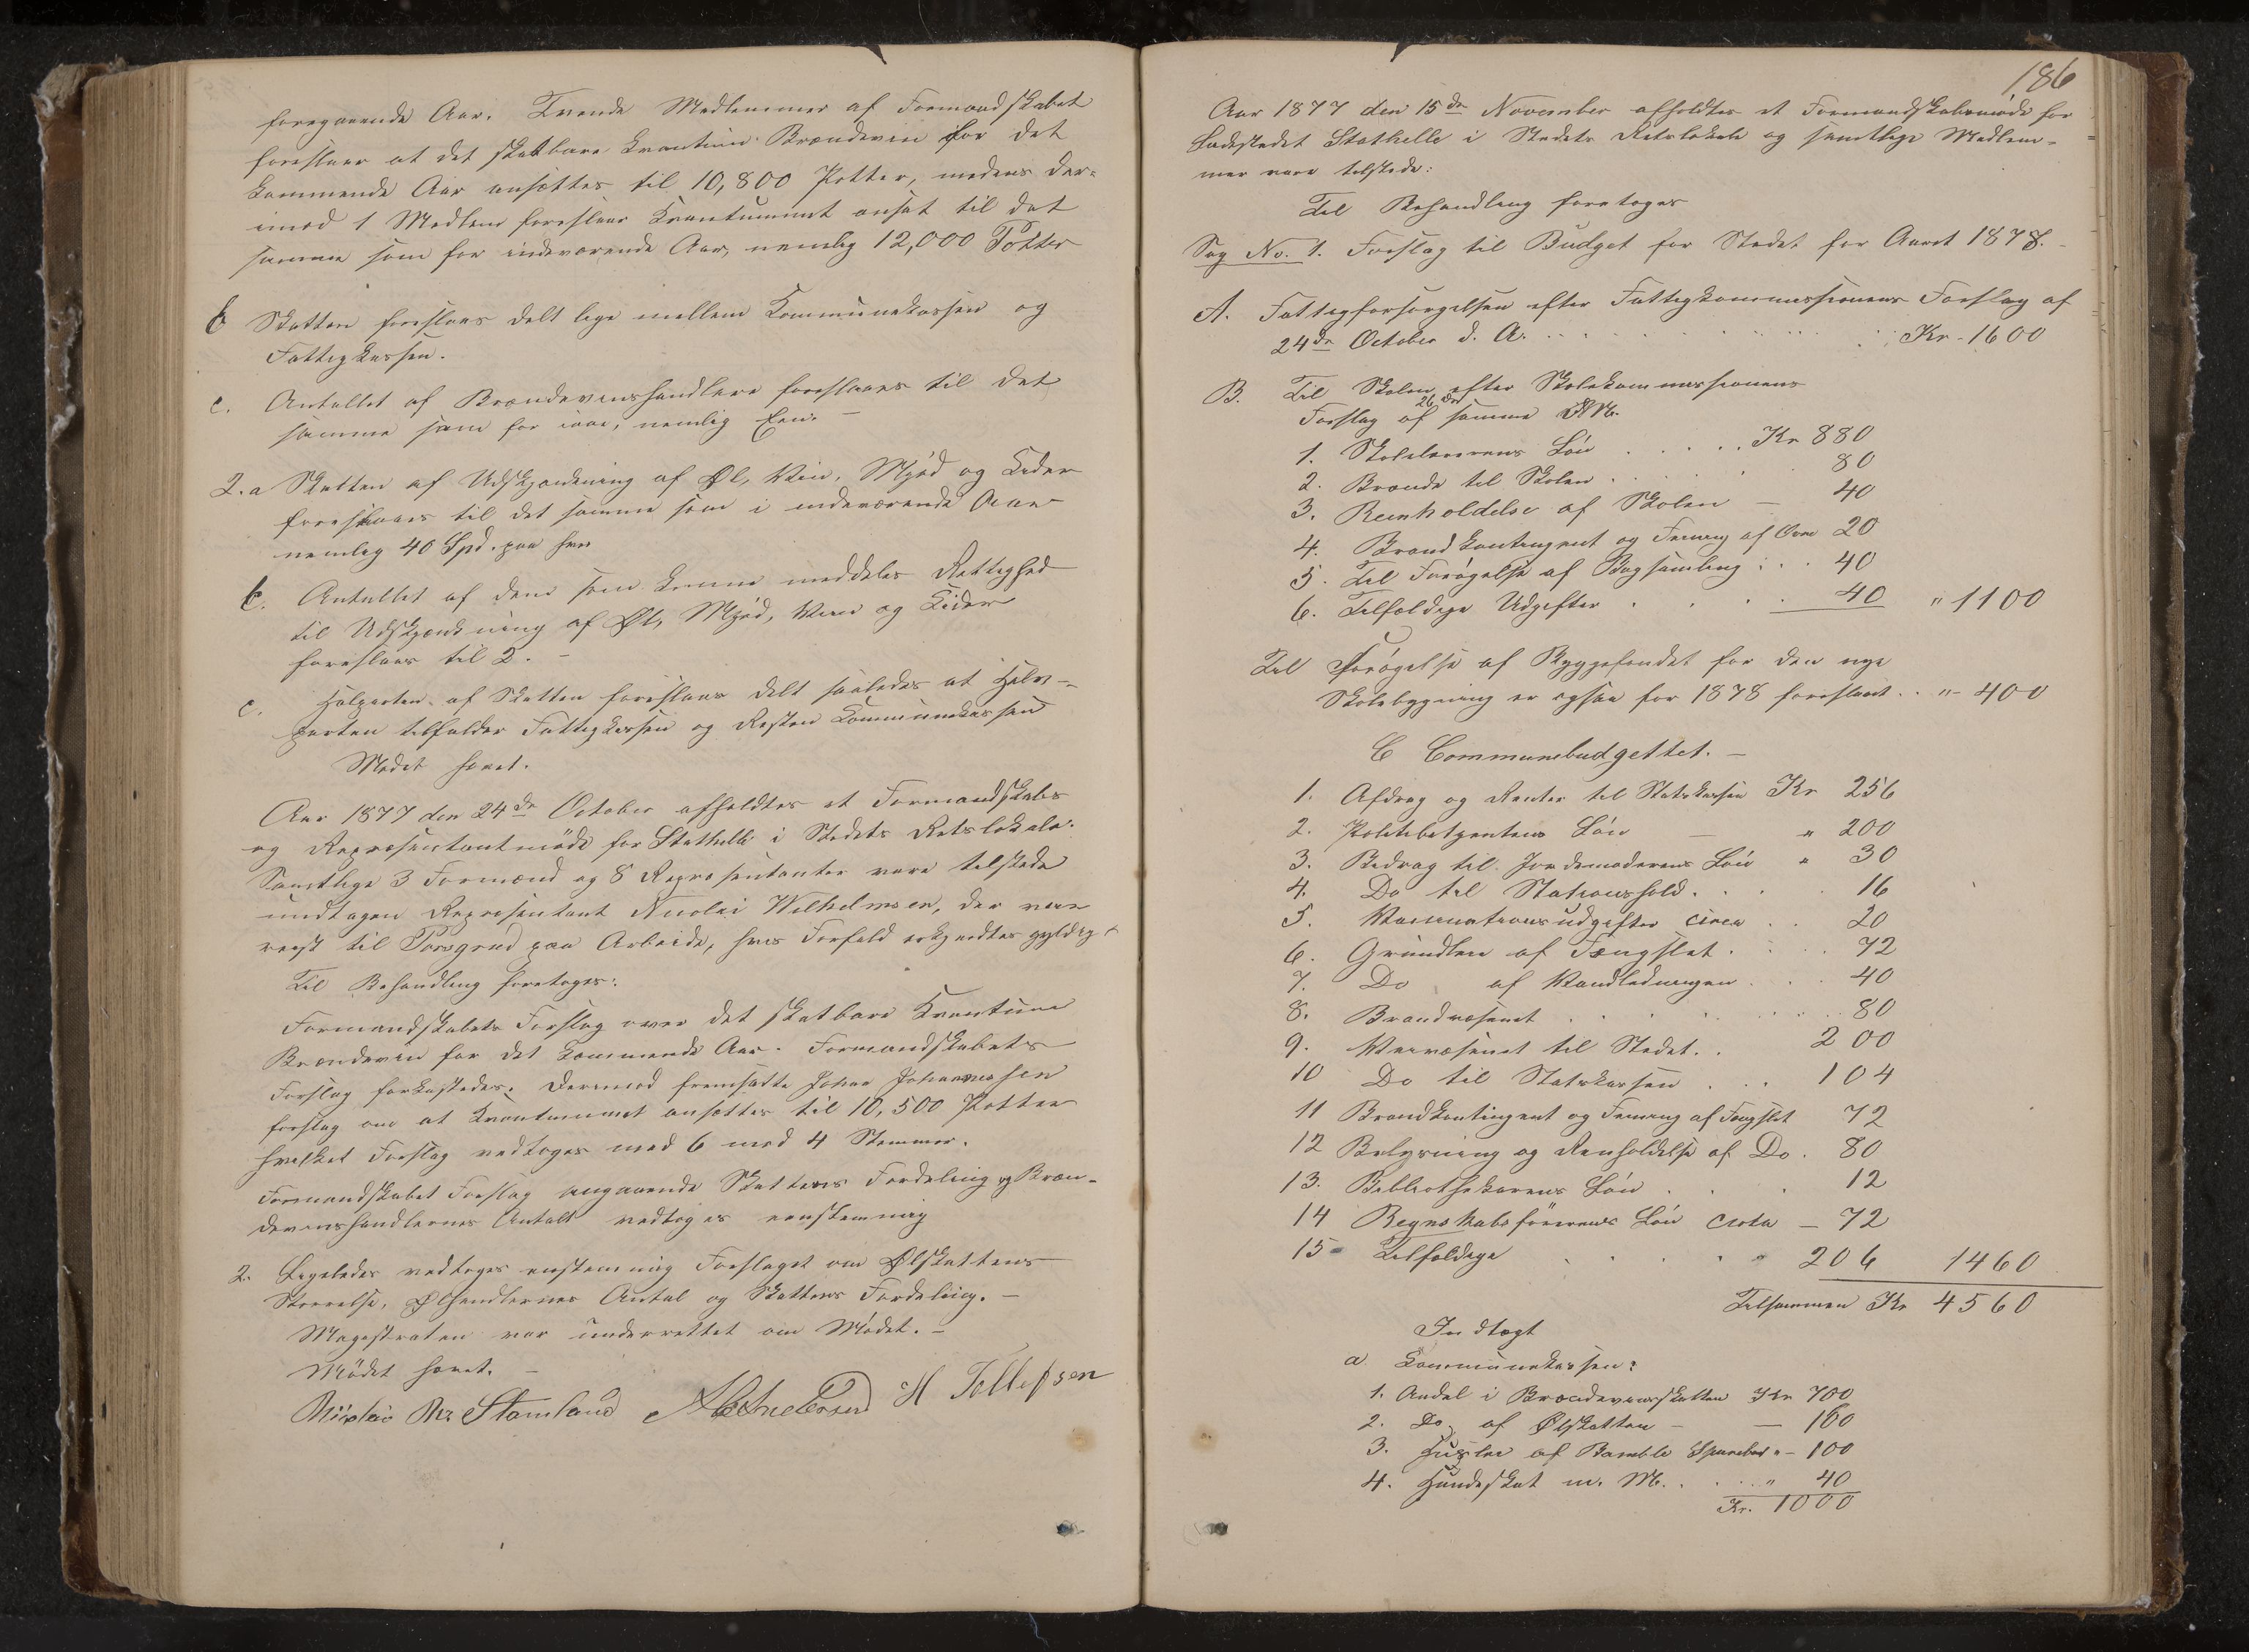 foregaaende Aar. Tvende Medlemmer af Formandskabet
foreslaar at det skatbare Kvantum Brændevin for det
kommende Aar ansættes til 10,800 Potter, medens der-
imod 1 Medlem foreslaar Kvantummet ansat til det
samme som for indeværende Aar, nemlig 12,000 Potter
b Skatten foreslaaes delt lige mellem Kommunekassen og
Fattigkassen.
c. Antallet af Brændevinshandlere foreslaaes til det
samme som for iaar, nemlig Een. –
2.a Skatten af Udskjænkning af Øl, Vin, Mjød og Cider
foreslaaes til det samme som i indeværende Aar
nemlig 40 Spd. paa hver
b. Antallet af dem som kunne meddeles Rettighed
til Udskjænkning af Øl, Mjød, Vin og Cider
foreslaaes til 2. –
c. Halparten af Skatten foreslaaes delt saaledes at Halv-
parten tilfalder Fattigkassen og Resten Kommunekassen
Mødet hævet.
Aar 1877 den 24de October afholdtes et Formandskabs
og Repræsentantmøde for Stathelle i Stedets Retslokale.
Samtlige 3 Formænd og 8 Repræsentanter vare tilstede
undtagen Repræsentant Nicolai Wilhelmsen, der var
reist til Porsgrund paa Arbeide, hvis Forfald erkjendtes gyldigt
Til Behandling foretoges:
Formandskabets Forslag over det skatbare Kvantum
Brændevin for det kommende Aar. Formandskabets
Forslag forkastedes. Derimod fremsatte Johan Johannessen
forslag om at Kvantummet ansættes til 10,500 Potter
hvilket Forslag vedtoges med 6 mod 4 Stemmer.
Formandskabet Forslag angaaende Skattens Fordeling og Bræn-
devinshandlernes Antalt vedtoges eenstemmig
2. Ligeledes vedtoges enstemmig Forslaget om Ølskattens
Størrelse, Ølhandlernes Antal og Skattens Fordeling. –
Magistraten var underrettet om Mødet. –
Mødet hævet. –
Nicolai Stamland H Tollefsen
186
Aar 1877 den 15de November afholdtes et Formandskabsmøde for
Ladestedet Stathelle i Stedets Retslokale og samtlige Medlem-
mer vare tilstede:
Til Behandling foretoges
Sag No. 1. Forslag til Budget for Stedet for Aaret 1878. –
A. Fattigforsørgelsen efter Fattigkommissionens Forslag af
24de October d. A. . . . . Kr - 1600
B. Til Skolen efter Skolekommissionens
Forslag af 26de samme M.
1. Skolelærerens Løn . . . . . Kr 880
2. Brænde til Skolen . . . 80
3. Reenholdelse af Skolen – 40
4. Brandkontingent og Feining af Ovn 20
5. Til Forøgelse af Bogsamling . . . 40
6. Tilfældige Udgifter . . . . 40 " 1100
Til Forøgelse af Byggefondet for den nye
Skolebygning er ogsaa for 1878 foreslaaet . . "- 400
C Communebudgettet. –
1. Afdrag og Renter til Statskassen Kr 256
2. Politibetjentens Løn – " 200
3. Bidrag til Jordemoderens Løn " 30
4. Do til Stationshold . . . 16
5. Vaccinationsudgifter circa . . 20
6. Grundleie af Fængslet . . . 72
7. Do af Vandledningen . . . 40
8. Brandvæsenet . . . . . 80
9. Veivæsenet til Stedet . . 200
10 Do til Statskassen . . . 104
11 Brandkontingent og Feining af Fengslet 72
12 Belysning og Renholdelse af Do . 80
13. Bibliothekarens Løn . . . 12
14 Regnskabsførerens Løn – 72
15 Tilfældige . . . . . 206 1460
Tilsammen Kr 4560
Indtægt
a Kommunekassen:
1. Andel i Brændevinsskatten Kr 700
2. Do af Ølskatten – – 160
3. Husleie af Bamble Sparebank "- 100
4. Hundeskat m. M. . . . " 40
Kr. 1000